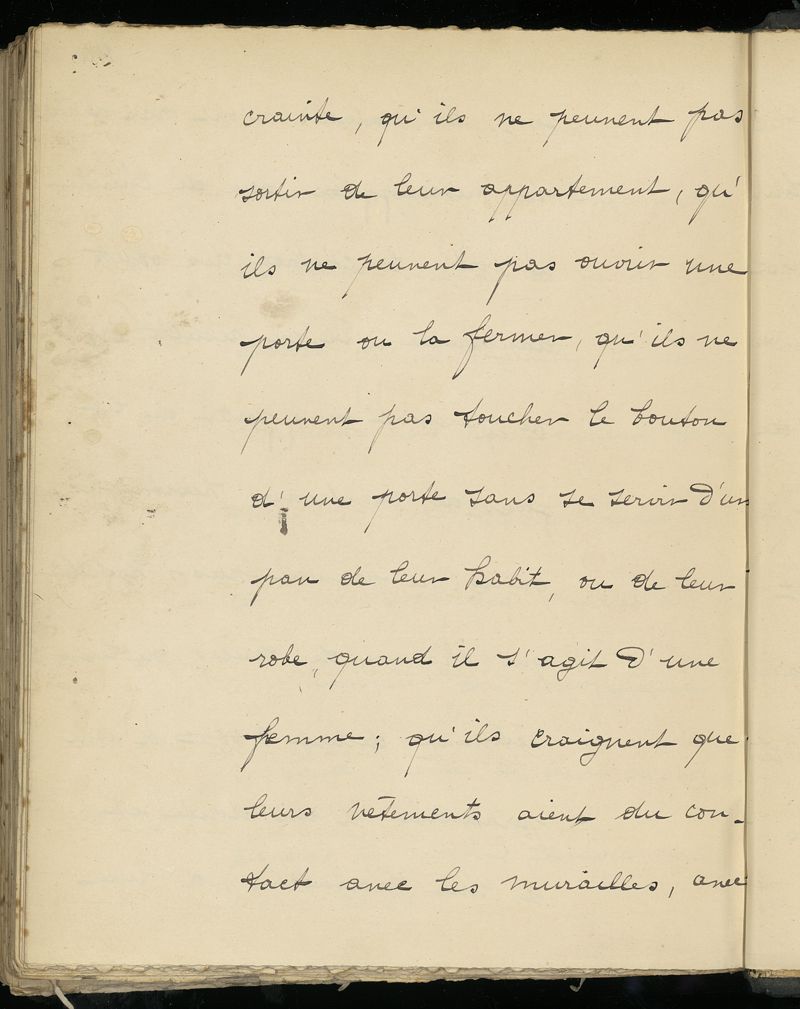 crainte, qu'ils ne peuvent pas
sortir de leur appartement, qu'
ils ne peuvent pas ouvrir une
porte ou la fermer, qu'ils ne
peuvent pas toucher le bouton
d'une porte sans se servir d'un
pan de leur habit, ou de leur
robe, quand il s'agit d'une
femme; qu'ils craignent que
leurs vêtements aient du con-
tact avec les murailles, avec